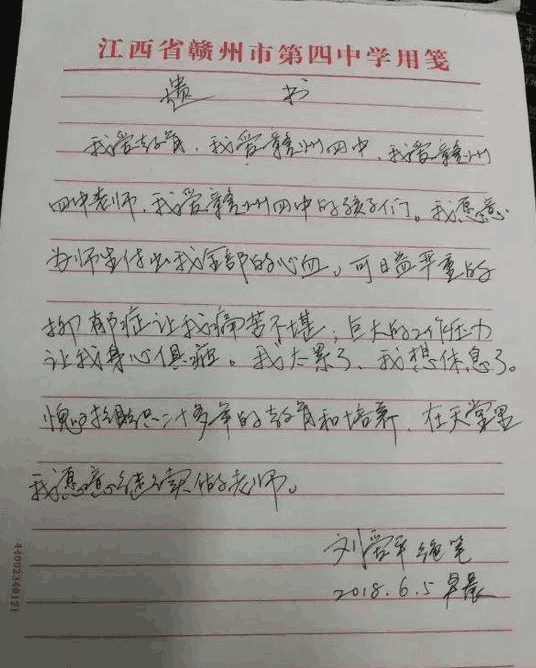 江西省赣州市第四中学用笺
遗 书
我爱教育，我爱赣州四中，我爱赣州
四中老师，我爱赣州四中的孩子们。我愿意
为师生付出我全部的心血。可日益严重的
抑郁症让我痛苦不堪，巨大的工作压力
让我身心俱疲。我太累了，我想休息了。
愧对组织二十多年的教育和培养，在天堂里
我愿意继续做老师。
刘爱平 绝笔
2018.6.5 早晨